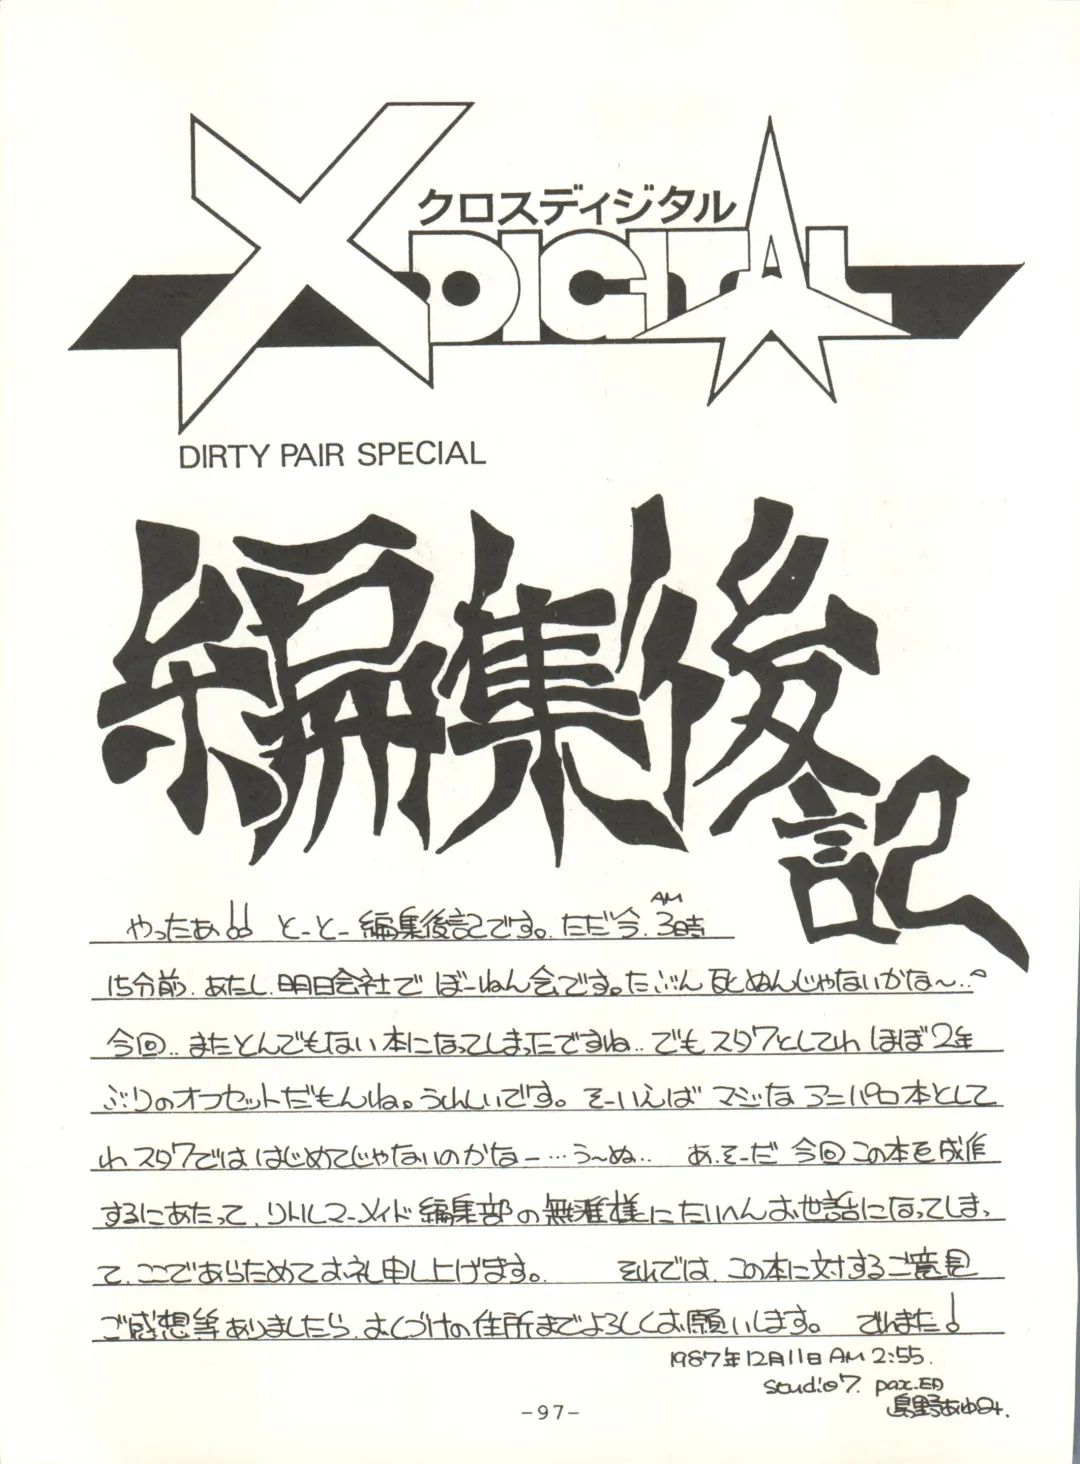 クロスディジタル
X DIGITAL
DIRTY PAIR SPECIAL
編集後記
やったあ!! とーとー編集後記です。ただ今、AM3時
15分前、あたし、明日会社でぼーねん会です。たぶん死ぬんじゃないかな〜..。
今回..またとんでもない本になってしまったですね..でもスタ7としてわほぼ2年
ぶりのオフセットだもんね。うれしいです。そーいえばマジなアニパロ本として
わスタ7でははじめてじゃないのかなー…う〜ぬ.. あ、そーだ今回この本を成作
するにあたって、リトルマーメイド編集部の無難様にたいへんお世話になってしまっ
て、ここであらためてお礼申し上げます。 それでは、この本に対するご意見
ご感想等ありましたら、おくづけの住所までよろしくお願いします。 でわまた!
1987年12月11日AM2:55.
studio7. pax.ED
島野あゆみ.
-97-